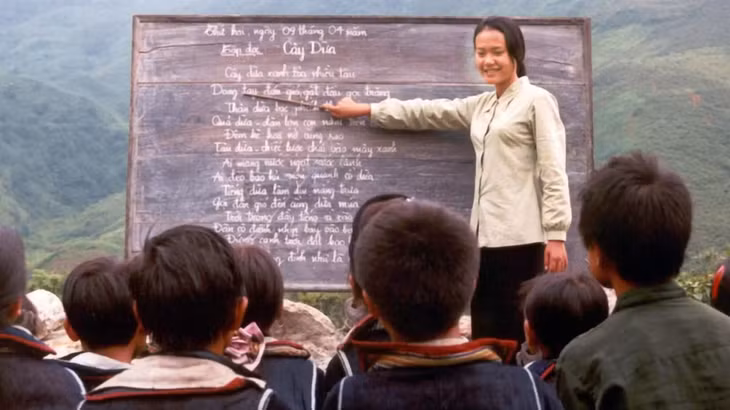 Thứ hai, ngày 09 tháng 04 năm
Tập đọc Cây Dừa
Cây dừa xanh tỏa nhiều tàu
Dang tay đón gió gật đầu gọi trăng
Thân dừa bạc
Quả dừa - đàn lợn con nằm trên
Đêm hè hoa nở cùng sao
Tàu dừa - chiếc lược chải vào mây xanh
Ai mang nước ngọt nước lành
Ai đeo bao hũ rượu quanh cổ dừa
Tiếng dừa làm dịu nắng trưa
Gọi đàn gió đến cùng dừa múa
Trời trong đầy tiếng rì
Đàn cò đánh nhịp bay vào
Đứng canh trời đất bao
đỉnh như là